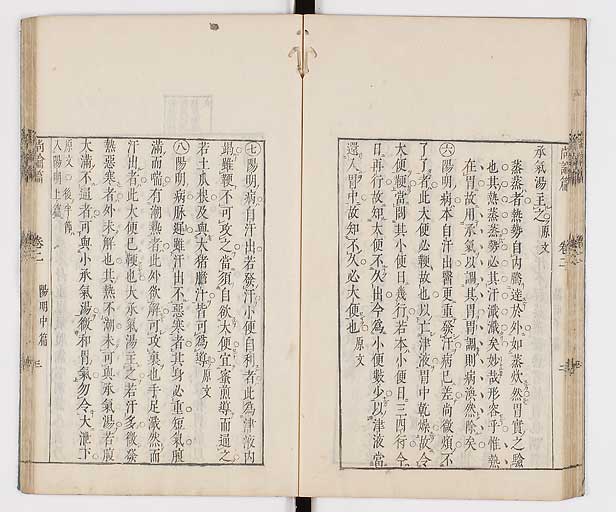 尚論篇 卷二
承氣湯主之 原文
蒸蒸者熱勢自內騰達於外如蒸炊然胃實之驗
也其熱蒸蒸勢必其汗濈濈矣妙哉形容乎惟熱
在胃故用承氣以調其胃胃調則病渙然除矣
㊅陽明病本自汗出醫更重發汗病已差尚微煩不
了了者此大便必鞕故也以亡津液胃中乾燥故令
大便鞕當問其小便日幾行若本小便日三四行今
日再行故知大便不久出今為小便數少以津液當
還入胃中故知不久必大便也 原文
㊆陽明病自汗出若發汗小便自利者此為津液內
竭雖鞕不可攻之當須自欲大便宜蜜煎導而通之
若土瓜根及與大猪膽汁皆可為導 原文
㊇陽明病脉遲雖汗出不惡寒者其身必重短氣腹
滿而喘有潮熱者此外欲解可攻裏也手足濈然而
汗出者此大便已鞕也大承氣湯主之若汗多微發
熱惡寒者外未解也其熱不潮未可與承氣湯若腹
大滿不通者可與小承氣湯微和胃氣勿令大泄下
原文 ○後半
入陽明上篇
尚論篇 卷二 陽明中篇 三